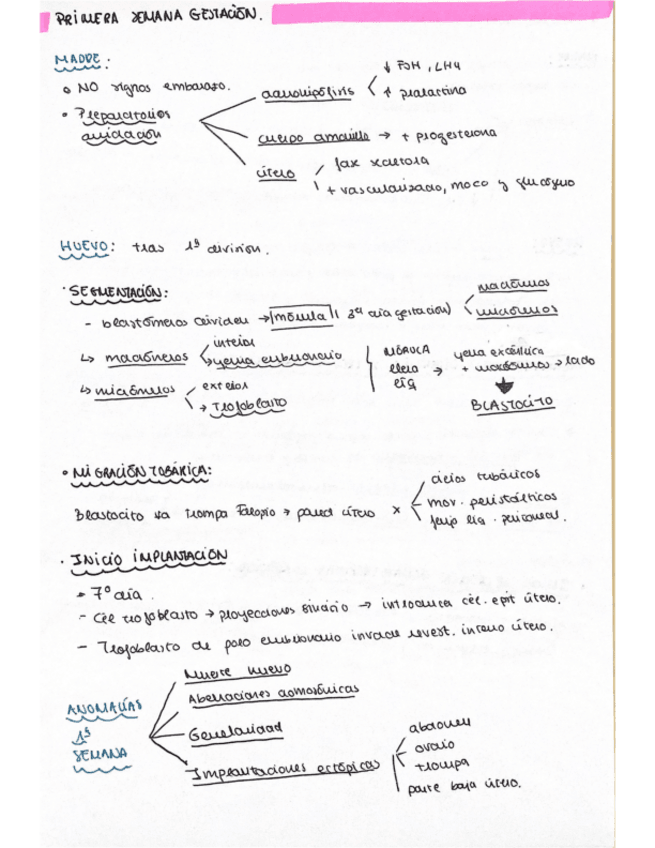 PRIMERA SEMANA GESTACIÓN.
MADRE:
• NO signos embarazo.
• Preparatorios anidación
adenohipófisis
↓ FSH, LH y
+ prolactina
cuerpo amarillo → + progesterona
útero
fase secretora
+ vascularizado, moco y glucógeno
HUEVO: tras 1ª división.
• SEGMENTACIÓN:
- blastómeros dividen → mórula (3er día gestación)
macrómeros
micrómeros
↳ macrómeros
interior
yema embrionaria
↳ micrómeros
exterior
→ Trofoblasto
MÓRULA
llena
líq
→
yema excéntrica
+ macrómeros → lado
BLASTOCITO
• MIGRACIÓN TUBÁRICA:
Blastocito va Trompa Falopio → pared útero x
cilios tubáricos
mov. peristálticos
flujo líq. peritoneal.
• INICIO IMPLANTACIÓN
- 7º día.
- Cél trofoblasto → proyecciones sincitio → introducen cél. epit útero.
- Trofoblasto de polo embrionario invade revest. interno útero.
ANOMALÍAS
1ª
SEMANA
Muerte huevo
Aberraciones cromosómicas
Gemelaridad
Implantaciones ectópicas
abdomen
ovario
trompa
parte baja útero.